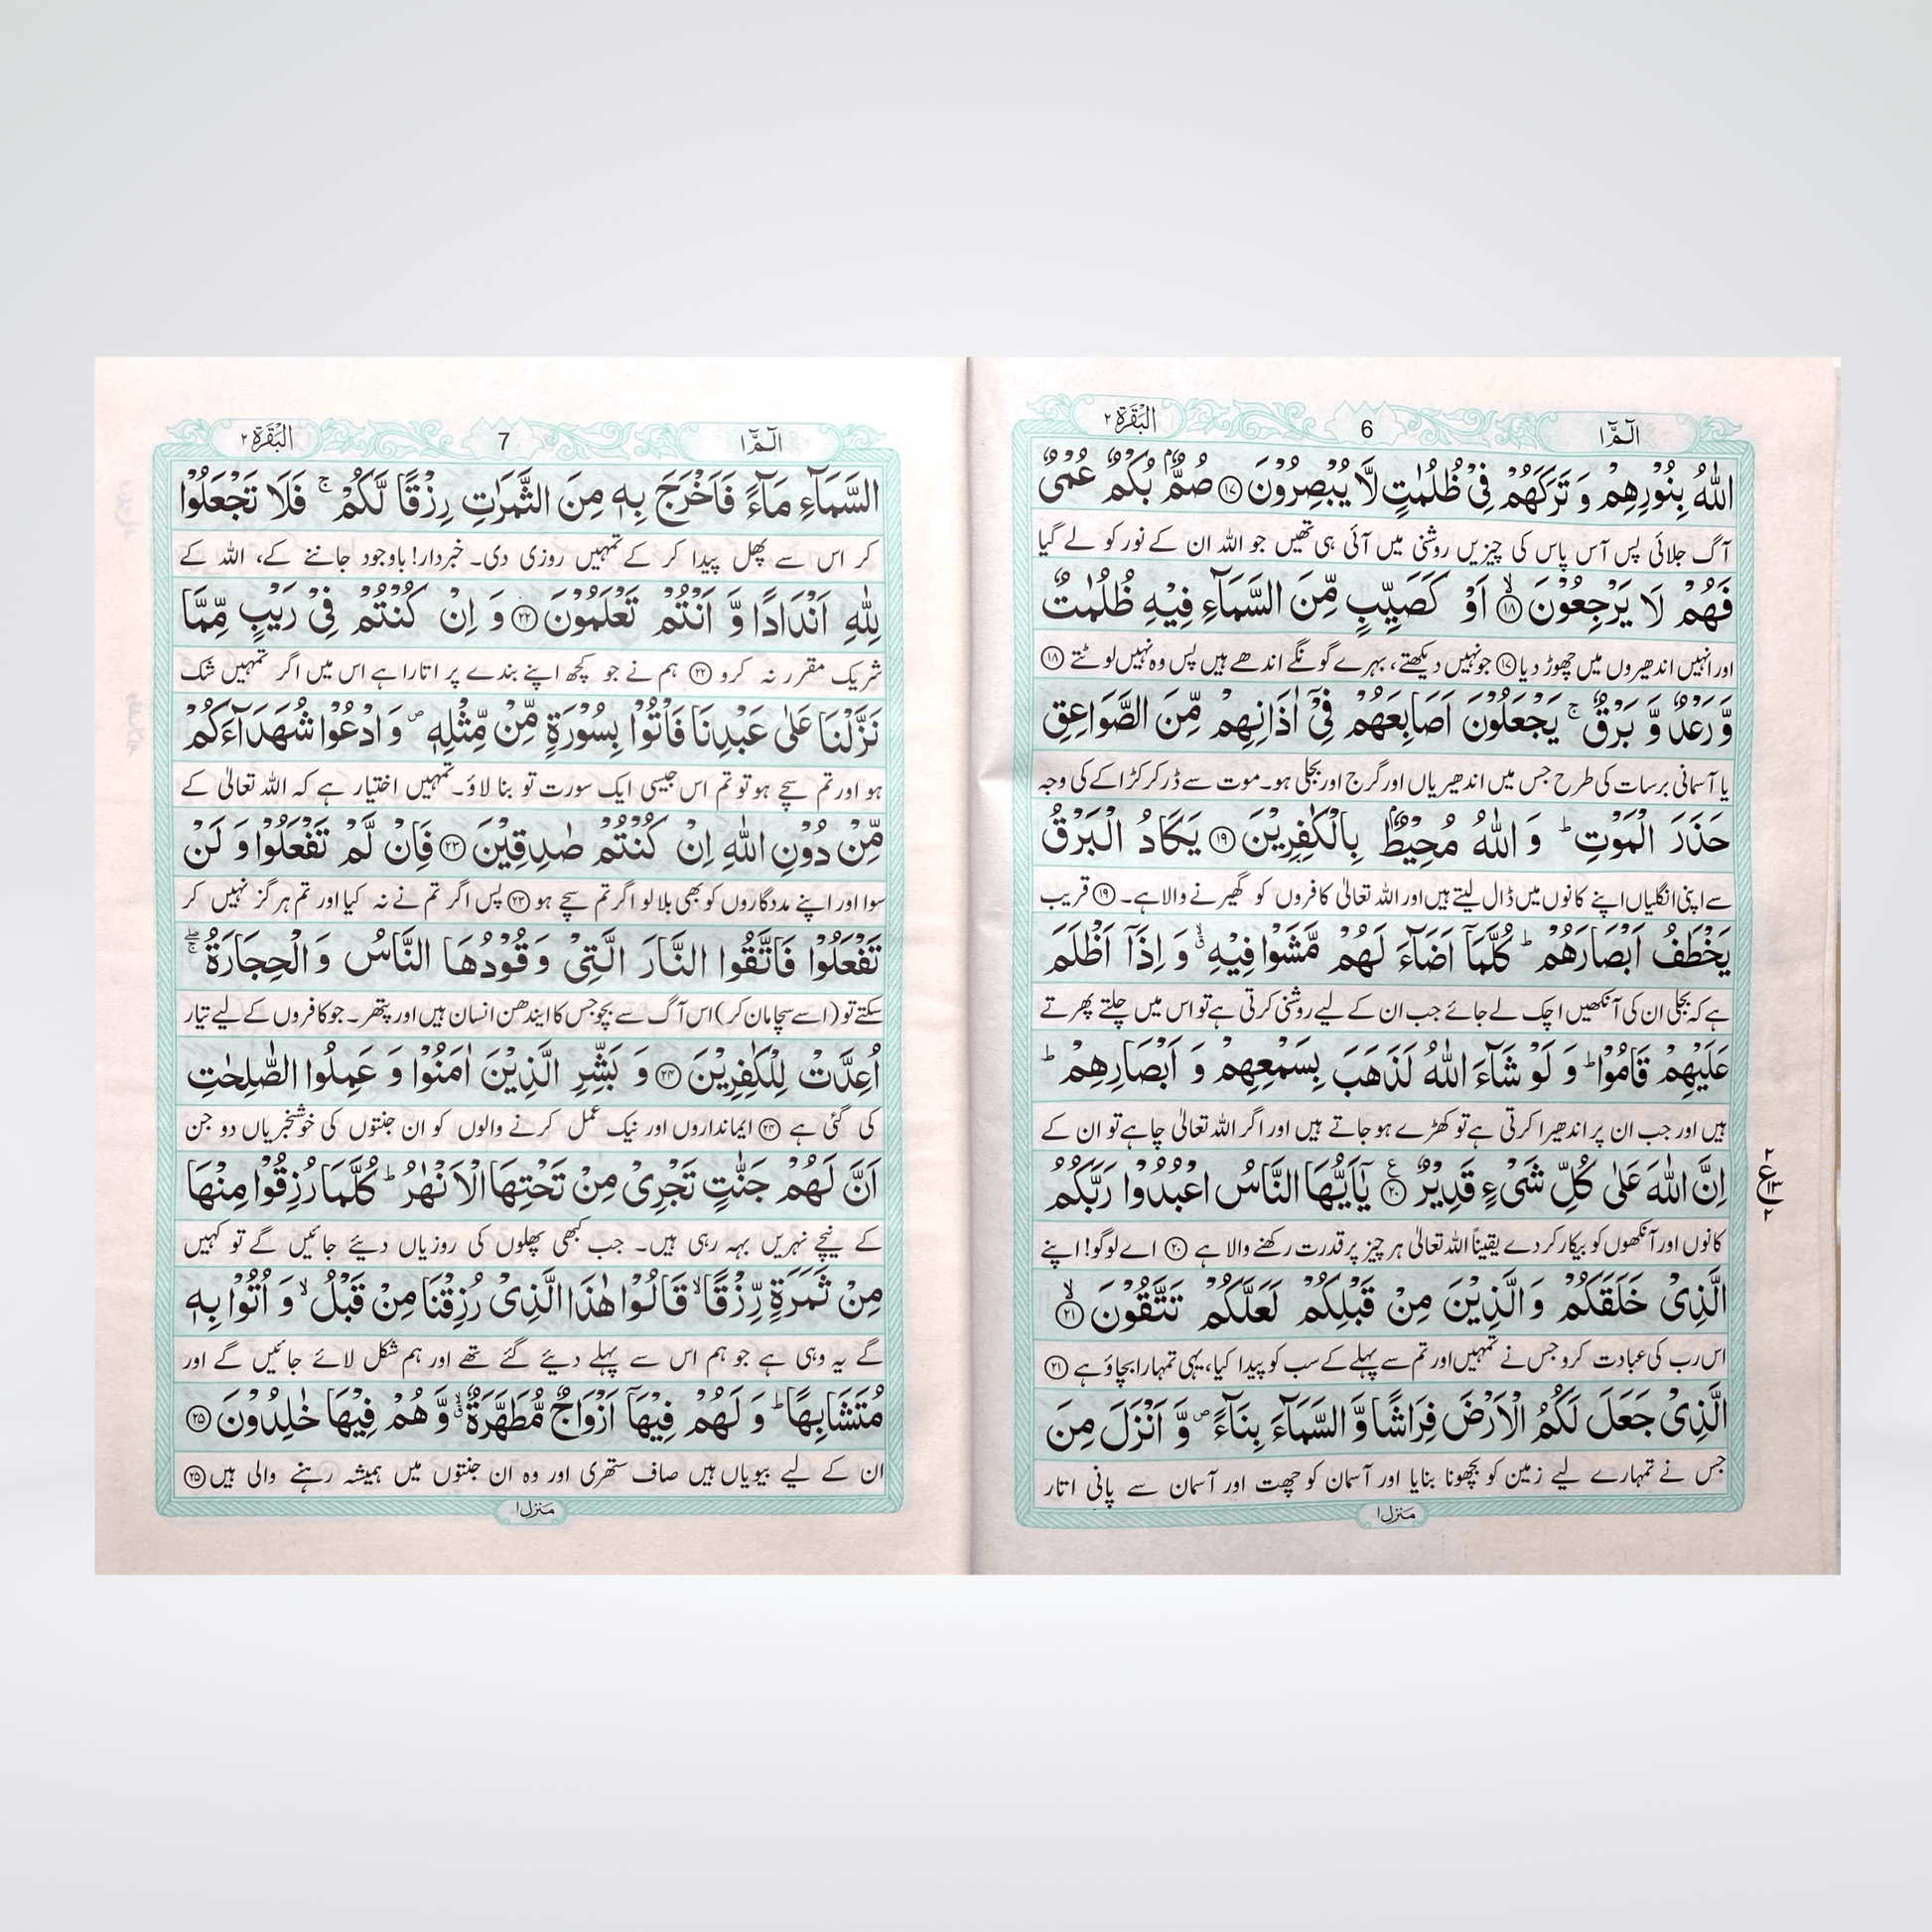 الٓمّٓ ١
6
البقرة ٢
اللّٰهُ بِنُوْرِهِمْ وَ تَرَكَهُمْ فِیْ ظُلُمٰتٍ لَّا یُبْصِرُوْنَ ﴿۱۷﴾ صُمٌّۢ بُكْمٌ عُمْیٌ
آگ جلائی پس آس پاس کی چیزیں روشنی میں آئی ہی تھیں جو اللہ ان کے نور کو لے گیا
فَهُمْ لَا یَرْجِعُوْنَ ﴿۱۸﴾ۙ اَوْ كَصَیِّبٍ مِّنَ السَّمَآءِ فِیْهِ ظُلُمٰتٌ
اور انہیں اندھیروں میں چھوڑ دیا ﴿۱۷﴾ جو نہیں دیکھتے، بہرے گونگے اندھے ہیں پس وہ نہیں لوٹتے ﴿۱۸﴾
وَّ رَعْدٌ وَّ بَرْقٌ ۚ یَجْعَلُوْنَ اَصَابِعَهُمْ فِیْۤ اٰذَانِهِمْ مِّنَ الصَّوَاعِقِ
یا آسمانی برسات کی طرح جس میں اندھیریاں اور گرج اور بجلی ہو۔ موت سے ڈر کر کڑاکے کی وجہ
حَذَرَ الْمَوْتِ ؕ وَ اللّٰهُ مُحِیْطٌۢ بِالْكٰفِرِیْنَ ﴿۱۹﴾ یَكَادُ الْبَرْقُ
سے اپنی انگلیاں اپنے کانوں میں ڈال لیتے ہیں اور اللہ تعالیٰ کافروں کو گھیرنے والا ہے۔ ﴿۱۹﴾ قریب
یَخْطَفُ اَبْصَارَهُمْ ؕ كُلَّمَاۤ اَضَآءَ لَهُمْ مَّشَوْا فِیْهِ ۙۗ وَ اِذَاۤ اَظْلَمَ
ہے کہ بجلی ان کی آنکھیں اچک لے جائے جب ان کے لیے روشنی کرتی ہے تو اس میں چلتے پھرتے
عَلَیْهِمْ قَامُوْا ؕ وَ لَوْ شَآءَ اللّٰهُ لَذَهَبَ بِسَمْعِهِمْ وَ اَبْصَارِهِمْ ؕ
ہیں اور جب ان پر اندھیرا کرتی ہے تو کھڑے ہو جاتے ہیں اور اگر اللہ تعالیٰ چاہے تو ان کے
اِنَّ اللّٰهَ عَلٰی كُلِّ شَیْءٍ قَدِیْرٌ ﴿۲۰﴾ۧ یٰۤاَیُّهَا النَّاسُ اعْبُدُوْا رَبَّكُمُ
٢ ع ١٣ ٢
کانوں اور آنکھوں کو بیکار کر دے یقیناً اللہ تعالیٰ ہر چیز پر قدرت رکھنے والا ہے ﴿۲۰﴾ اے لوگو! اپنے
الَّذِیْ خَلَقَكُمْ وَ الَّذِیْنَ مِنْ قَبْلِكُمْ لَعَلَّكُمْ تَتَّقُوْنَ ﴿۲۱﴾ۙ
اس رب کی عبادت کرو جس نے تمہیں اور تم سے پہلے کے سب کو پیدا کیا، یہی تمہارا بچاؤ ہے ﴿۲۱﴾
الَّذِیْ جَعَلَ لَكُمُ الْاَرْضَ فِرَاشًا وَّ السَّمَآءَ بِنَآءً ۪ وَّ اَنْزَلَ مِنَ
جس نے تمہارے لیے زمین کو بچھونا بنایا اور آسمان کو چھت اور آسمان سے پانی اتار
منزل ١
الٓمّٓ ١
7
البقرة ٢
السَّمَآءِ مَآءً فَاَخْرَجَ بِهٖ مِنَ الثَّمَرٰتِ رِزْقًا لَّكُمْ ۚ فَلَا تَجْعَلُوْا
کر اس سے پھل پیدا کر کے تمہیں روزی دی۔ خبردار! باوجود جاننے کے، اللہ کے
لِلّٰهِ اَنْدَادًا وَّ اَنْتُمْ تَعْلَمُوْنَ ﴿۲۲﴾ وَ اِنْ كُنْتُمْ فِیْ رَیْبٍ مِّمَّا
شریک مقرر نہ کرو ﴿۲۲﴾ ہم نے جو کچھ اپنے بندے پر اتارا ہے اس میں اگر تمہیں شک
نَزَّلْنَا عَلٰی عَبْدِنَا فَاْتُوْا بِسُوْرَةٍ مِّنْ مِّثْلِهٖ ۪ وَ ادْعُوْا شُهَدَآءَكُمْ
ہو اور تم سچے ہو تو تم اس جیسی ایک سورت تو بنا لاؤ۔ تمہیں اختیار ہے کہ اللہ تعالیٰ کے
مِّنْ دُوْنِ اللّٰهِ اِنْ كُنْتُمْ صٰدِقِیْنَ ﴿۲۳﴾ فَاِنْ لَّمْ تَفْعَلُوْا وَ لَنْ
سوا اور اپنے مددگاروں کو بھی بلا لو اگر تم سچے ہو ﴿۲۳﴾ پس اگر تم نے نہ کیا اور تم ہرگز نہیں کر
تَفْعَلُوْا فَاتَّقُوا النَّارَ الَّتِیْ وَ قُوْدُهَا النَّاسُ وَ الْحِجَارَةُ ۚۖ
سکتے تو (اسے سچا مان کر) اس آگ سے بچو جس کا ایندھن انسان ہیں اور پتھر۔ جو کافروں کے لیے تیار
اُعِدَّتْ لِلْكٰفِرِیْنَ ﴿۲۴﴾ وَ بَشِّرِ الَّذِیْنَ اٰمَنُوْا وَ عَمِلُوا الصّٰلِحٰتِ
کی گئی ہے ﴿۲۴﴾ ایمانداروں اور نیک عمل کرنے والوں کو ان جنتوں کی خوشخبریاں دو جن
اَنَّ لَهُمْ جَنّٰتٍ تَجْرِیْ مِنْ تَحْتِهَا الْاَنْهٰرُ ؕ كُلَّمَا رُزِقُوْا مِنْهَا
کے نیچے نہریں بہہ رہی ہیں۔ جب کبھی پھلوں کی روزیاں دیئے جائیں گے تو کہیں
مِنْ ثَمَرَةٍ رِّزْقًا ۙ قَالُوْا هٰذَا الَّذِیْ رُزِقْنَا مِنْ قَبْلُ ۙ وَ اُتُوْا بِهٖ
گے یہ وہی ہے جو ہم اس سے پہلے دیئے گئے تھے اور ہم شکل لائے جائیں گے اور
مُتَشَابِهًا ؕ وَ لَهُمْ فِیْهَاۤ اَزْوَاجٌ مُّطَهَّرَةٌ ۙۗ وَّ هُمْ فِیْهَا خٰلِدُوْنَ ﴿۲۵﴾
ان کے لیے بیویاں ہیں صاف ستھری اور وہ ان جنتوں میں ہمیشہ رہنے والی ہیں ﴿۲۵﴾
منزل ١